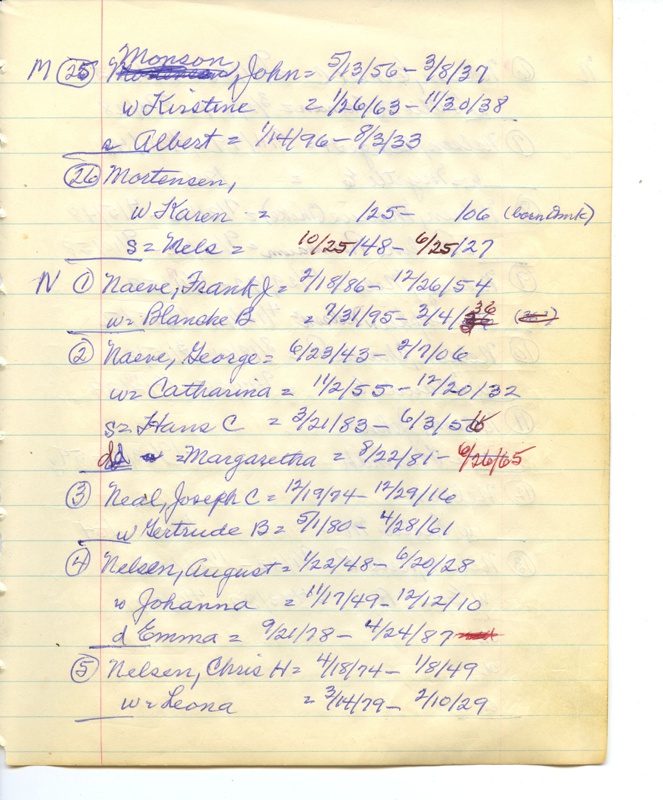 M (25) Monson, John = 5/13/56 - 3/8/37
w Kirstine = 1/26/63 - 11/30/38
s Albert = 1/14/96 - 8/3/33
(26) Mortensen,
w Karen = /25 - /06 (born Dmk)
s = Nels = 10/25/48 - 6/25/27
N (1) Naeve, Frank J = 2/18/86 - 12/26/54
w = Blanche B = 7/31/95 - 3/4/36
(2) Naeve, George = 6/23/43 - 2/7/06
w = Catharina = 11/2/55 - 12/20/32
s = Hans C = 3/21/83 - 6/3/5
d = Margaretha = 8/22/81 - 6/26/65
(3) Neal, Joseph C = 12/19/74 - 12/29/16
w Gertrude B = 5/1/80 - 4/28/61
(4) Nelsen, August = 1/22/48 - 6/20/28
w Johanna = 11/17/49 - 12/12/10
d Emma = 9/21/78 - 4/24/87
(5) Nelsen, Chris H = 4/18/74 - 1/8/49
w = Leona = 3/14/79 - 2/10/29